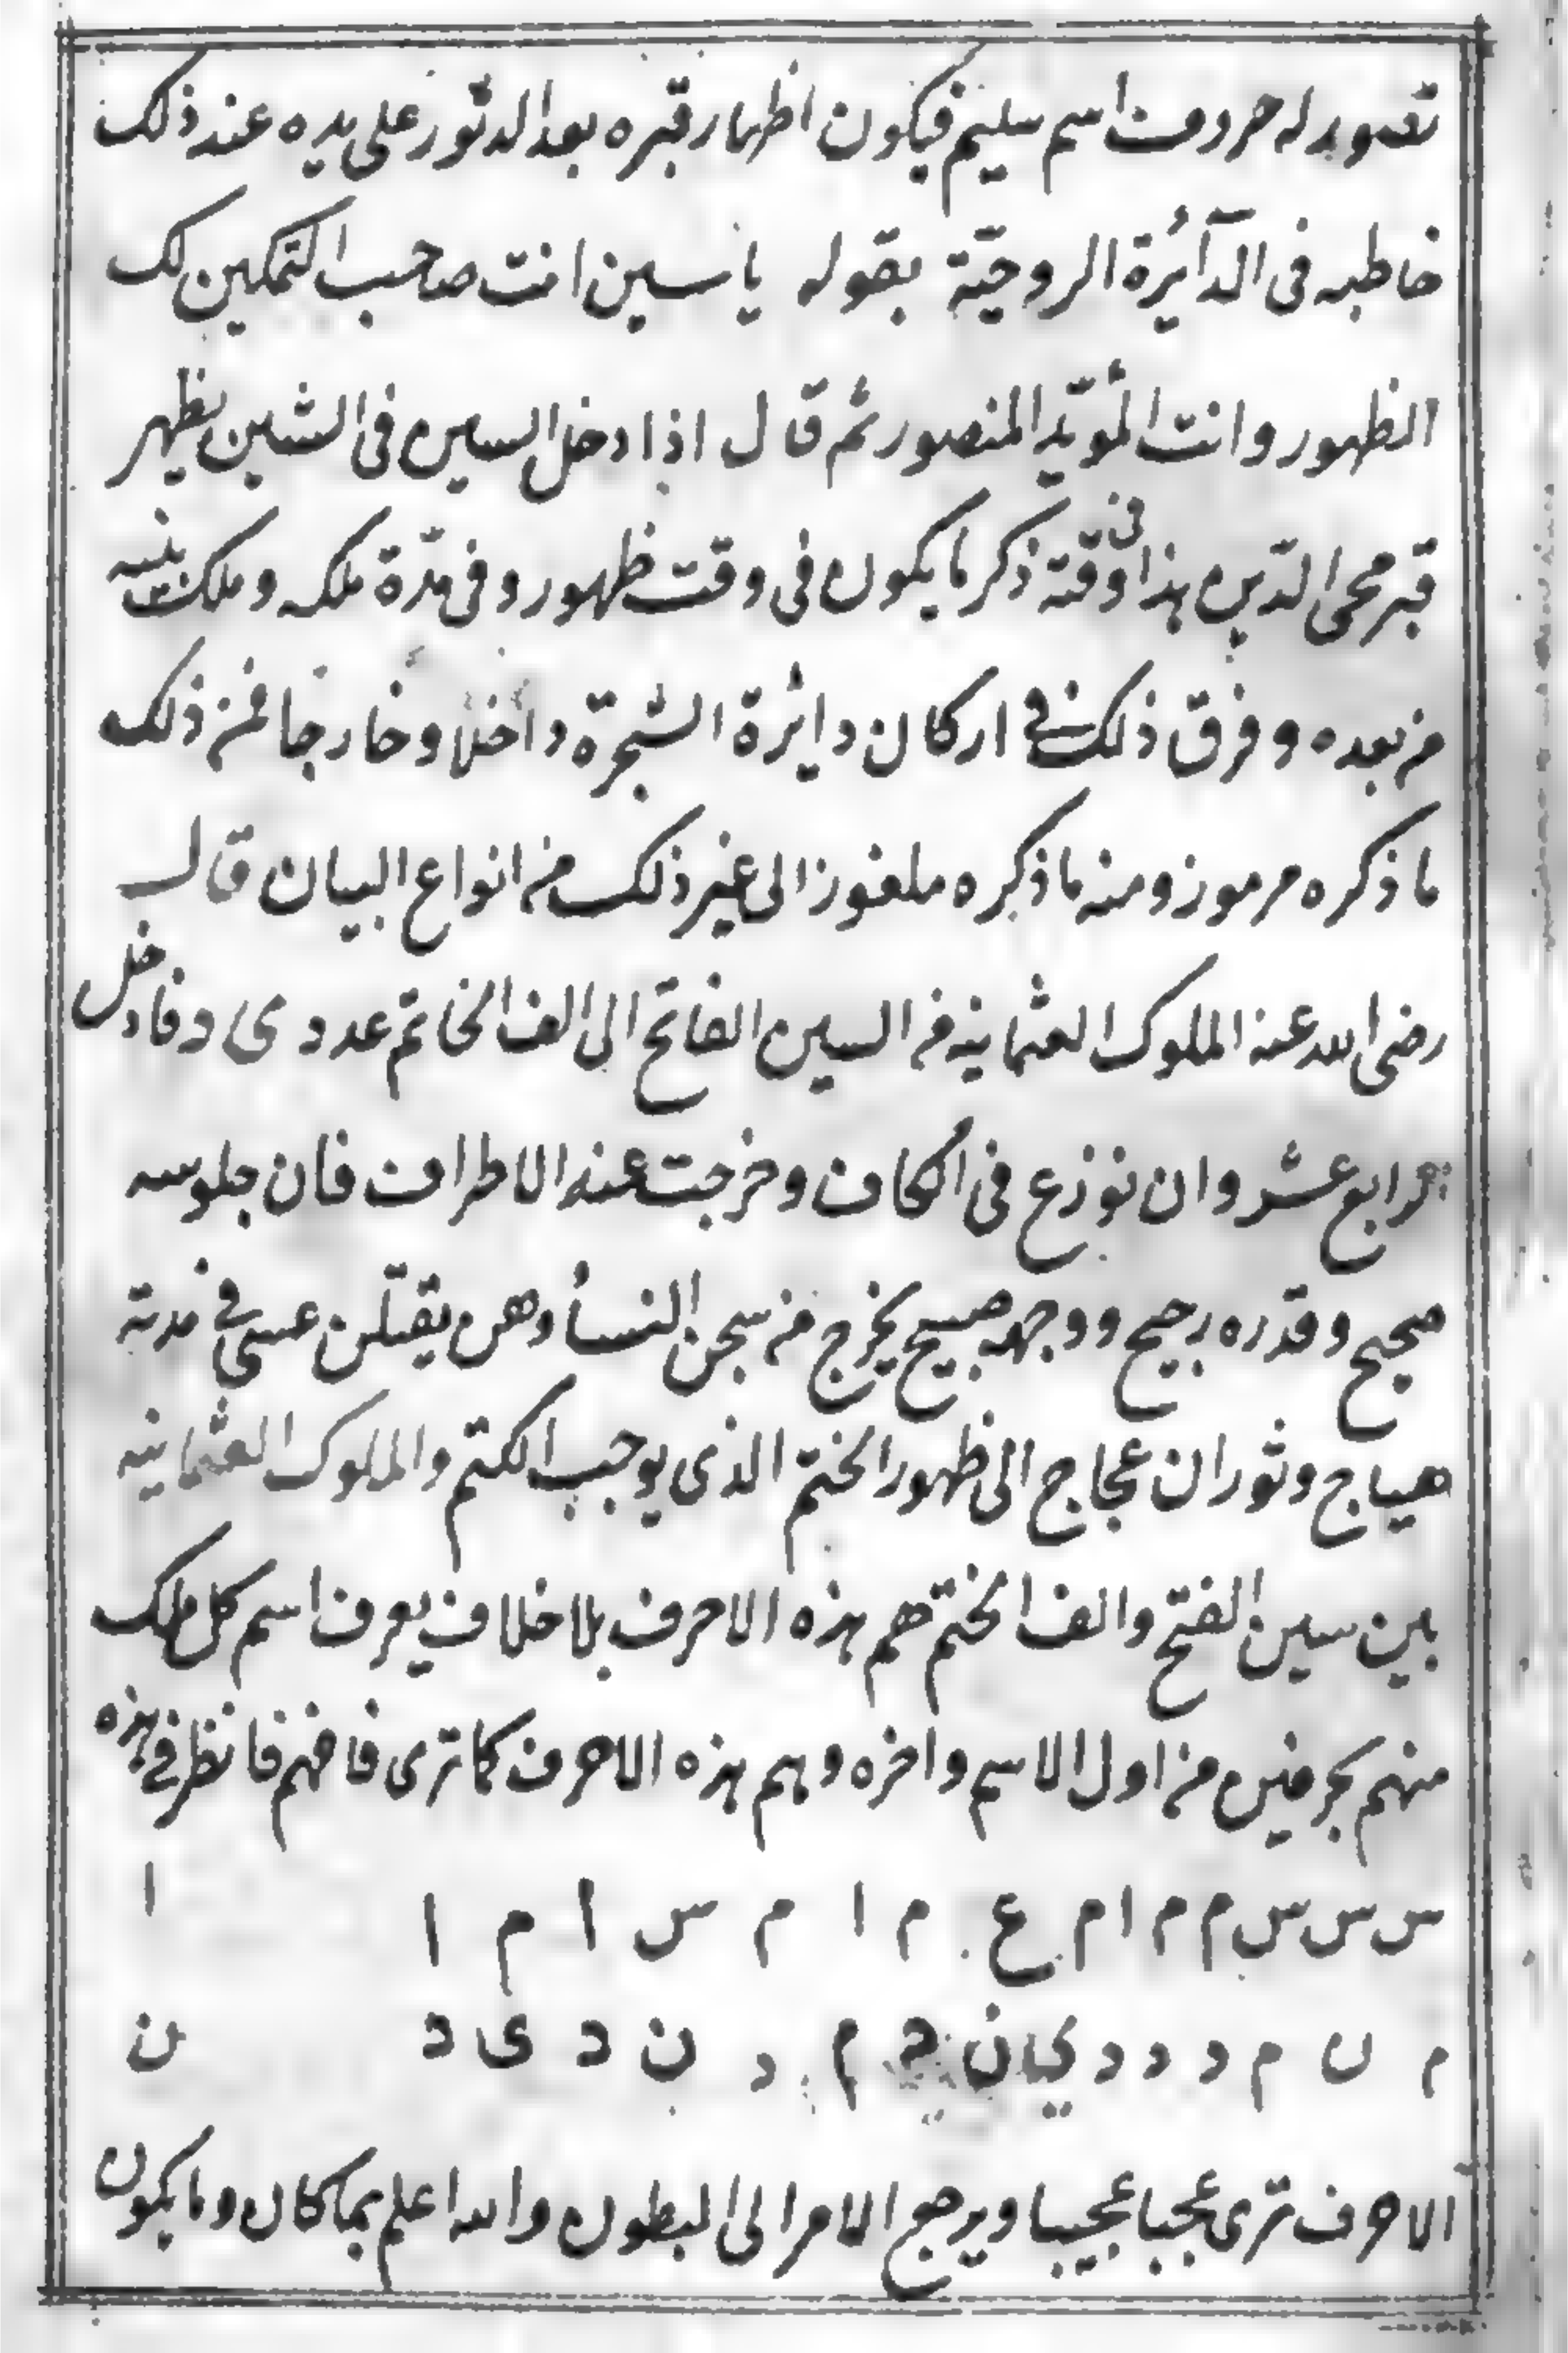 تصويرله حروف اسم سليم فيكون اظهار قبره بعد الدثور على يده عند ذلك
خاطبه فى الدآئرة الروحيّة بقوله ياسين انت صاحب التمكين لك
الظهور وانت المؤيّد المنصور ثم قال اذا دخل السين فى الشين يظهر
قبر محى الدّين هذا وقته فى ذكر ما يكون فى وقت ظهور وفى مدّة ملكه وملك بنيه
من بعده وفرق ذلك فى اركان دايرة الشجرة داخلا وخارجا فمن ذلك
ما ذكره مرموز ومنه ما ذكره ملغوز الى غير ذلك من انواع البيان قال
رضى الله عنه الملوك العثمانيه من السين الفاتح الى الف الخاتم عدد ى د فادخل
رابع عشر وان نوزع فى الكاف وخرجت عنه الاطراف فان جلوسه
صحيح وقدره رجيح ووجهه صبيح يخرج من سجن النساء وهن يقتلن عسى فى مدته
هياج وثوران عجاج الى ظهور الختم الذى يوجب الكتم والملوك العثمانيه
بين سين الفتح والف الختم هم هذه الاحرف بلا خلاف يعرف اسم كل ملك
منهم بحرفين من اول الاسم واخره وهم هذه الاحرف كما ترى فافهم فانظر فى هذه
س س س م م ا م ع م ا م س ا م ا ا
م ن م د د د ى ن د م د ن د ى د ن
الاحرف ترى عجبا عجيبا ويرجع الامر الى البطون والله اعلم بما كان وما يكون